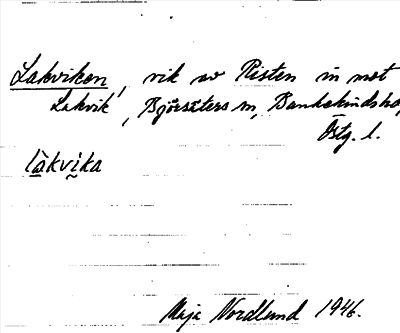 Lakviken, vik av Risten in mot
Lakvik, Björsäters sn, Bankekinds
Östg. l.
làkvika
Maja Nordlund 1946.